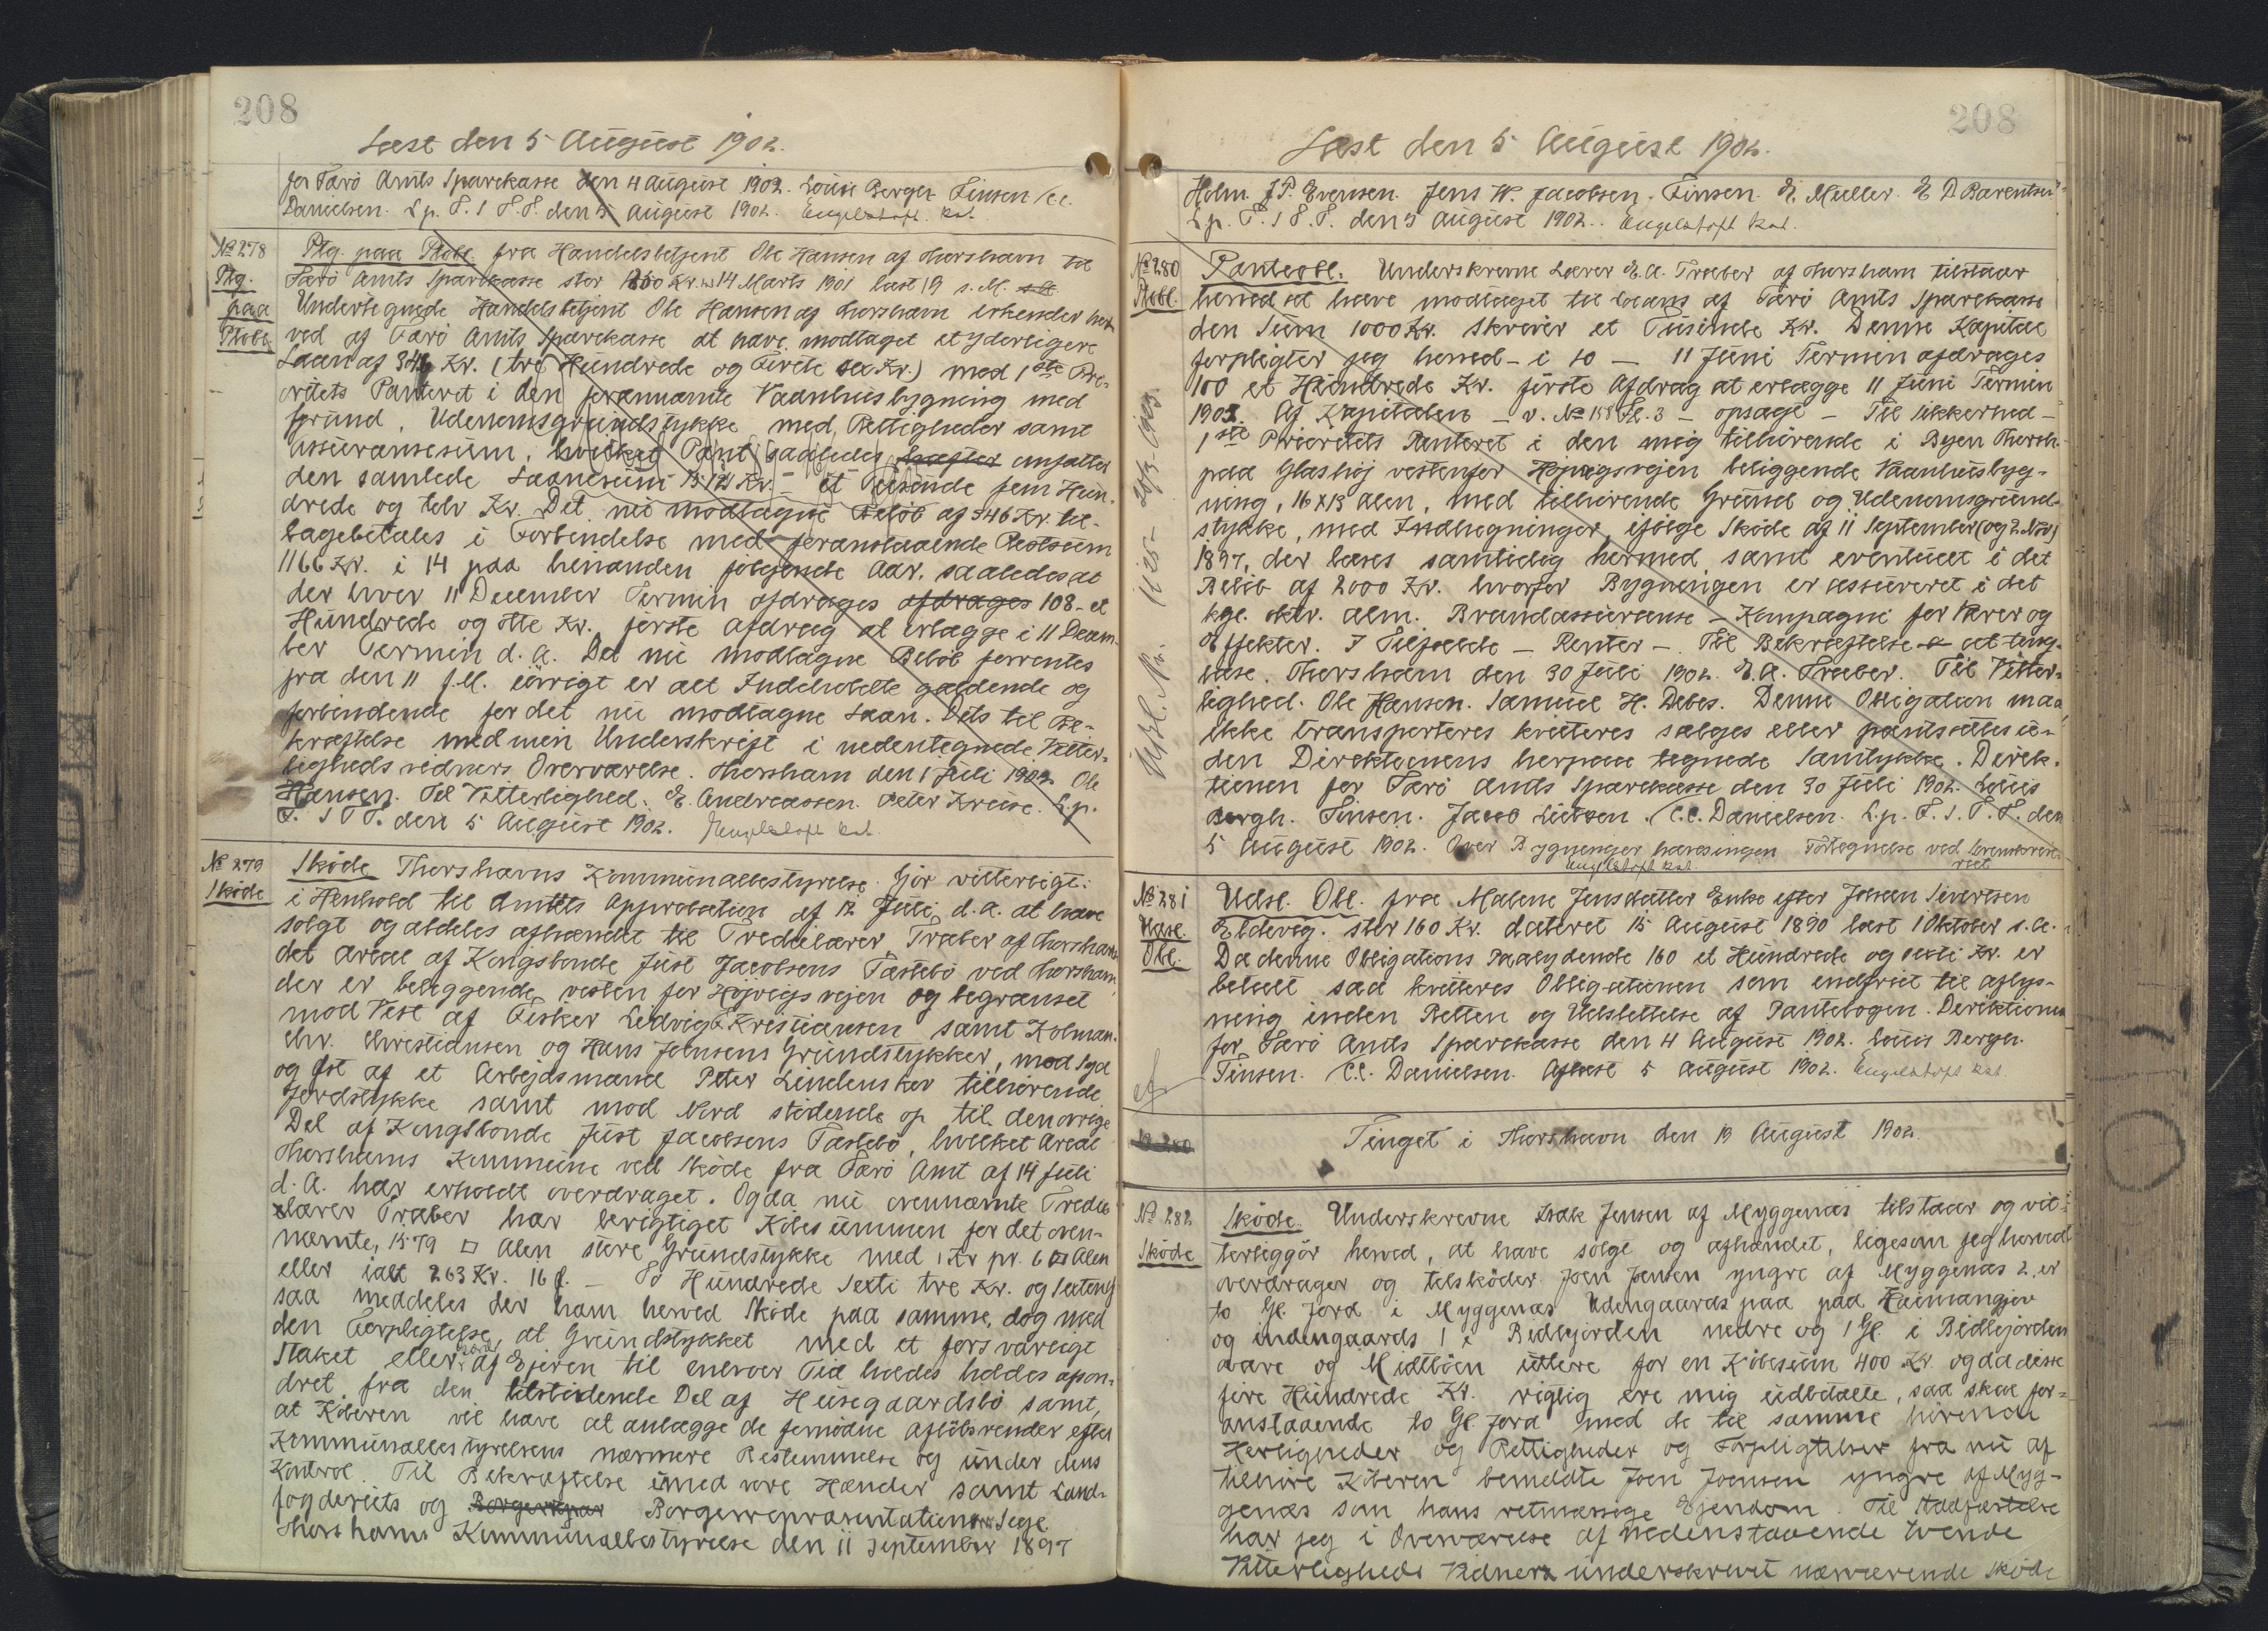 208
Læst den 5 August 1902.
for Færö Amts Sparekasse den 4 August 1902. Louis Bergh. Finsen C.C.
Danielsen. L.p. F. S. T. P. den 5 August 1902. Engelstoft kst.
№ 278
Ptg.
paa
Ptobl.
Ptg. paa Ptobl. fra Handelsbetjent Ole Hansen af Thorshavn til
Færö Amts Sparekasse stor 1250 Kr. 14 Marts 1901 læst 19 s.M.
Undertegnede Handelsbetjent Ole Hansen af Thorshavn erkender her-
ved af Færö Amts Sparekasse at have modtaget et yderligere
Laan af 346 Kr. (tre Hundrede og Firti sex Kr.) med 1ste Pri-
oritets Panteret i den forannævnte Vaanhusbygning med
Grund, Udenomsgrundstykke med Rettigheder samt
Assurancesum, hvilket Pant saaledes hæfter omfatter
den samlede Laanesum 1512 Kr. - et Tusinde fem Hun-
drede og tolv Kr. Det nu modtagne Belöb af 346 Kr. til-
bagebetales i Forbindelse med foranstaaende Restsum
1166 Kr. i 14 paa hinanden fölgende Aar, saaledes at
der hver 11 December Termin afdrages afdrages 108 - et
Hundrede og otte Kr. förste Afdrag at erlægge i 11 Decem-
ber Termin d.A. Det nu modtagne Belöb forrentes
fra den 11 f.M. iövrigt er alt Indeholdte gældende og
forbindende for det nu modtagne Laan. Dets til Be-
kræftelse med min Underskrift i nedentegnede Vitter-
lighedsvidners Overværelse. Thorshavn den 1 Juli 1902 Ole
Hansen. Til Vitterlighed: E. Andreassen. Peter Kruse. L.p.
F. S. T. P. den 5 August 1902. Engelstoft kst.
№ 279
Sköde
Sköde Thorshavns Kommunalbestyrelse Gjör vitterligt:
i Henhold til Amtets Approbation af 12 Juli d.A. at have
solgt og aldeles afhændet til Fredelærer Træber af Thorshavn
det Areal af Kongsbonde Just Jacobsens Fæstebö ved Thorshavn
der er beliggende vesten for Höjvigsvejen og begrænset
mod Vest af Fisker Ludvig F. Kristiansen samt Kolman.
Chr. Christiansen og Hans Johnsens Grundstykker, mod Syd
og Öst af et Arbejdsmand Peter Lindenskov tilhörende
Jordstykke samt mod Nord stödende op til den övrige
Del af Kongsbonde Just Jacobsens Fæstebö, hvilket Areal
Thorshavns Kommune ved Sköde fra Færö Amt af 14 Juli
d.A. har erholdt overdraget. Og da nu ovennævnte
lærer Træber har berigtiget Köbesummen for det oven-
nævnte, 1579 □ Alen store Grundstykke med 1 Kr pr. 6 □ Alen
eller ialt 263 Kr. 16 f. - To Hundrede Sexti tre Kr. og Sexten f
saa meddeles der ham herved Sköde paa samme, dog med
den Forpligtelse, at Grundstykket med et forsvarligt
Staket eller af Ejeren til enhver Tid holdes holdes afson-
dret fra den tilstödende Del af Husegaardsbö samt,
at Köberen vil have at anlægge de fornödne Aflöbsrender efter
Kommunalbestyrelsens nærmere Bestemmelse og under dens
Kontrol. Til Bekræftelse under vore Hænder samt Land-
fogderiets og Borgerrepræsentationens Segl.
Thorshavns Kommunalbestyrelse den 11 September 1897
208
Læst den 5 August 1902.
Holm. J.P. Evensen. Jens W. Jacobsen. Finsen. E. Müller. E D Bærentsen
L.p. F. S. T. P. den 5 August 1902. Engelstoft kst.
№ 280
Ptobl.
Panteobl. Underskrevne Lærer E.A. Træber af Thorshavn tilstaar
herved at have modtaget til Laans af Færö Amts Sparekasse
den Sum 1000 Kr. skriver et Tusinde Kr. Denne Kapital
forpligter jeg herved - i 10 - 11 Juni Termin afdrages
100 et Hundrede Kr. förste Afdrag at erlægge 11 Juni Termin
1903. Af Kapitalen - v. № 158 Fl. 3 - opsagt - Til Sikkerhed -
1ste Prioritets Panteret i den mig tilhörende i Byen Thorsh.
paa Glashöj vestenfor Höjvigsvejen beliggende Vaanhusbyg-
ning, 16 x 13 Alen, med tilhörende Grund og Udenomsgrund-
stykke, med Indhegninger, ifölge Sköde af 11 September (og 2. Nov)
1897, der læses samtidig hermed, samt eventuelt i det
Belöb af 2000 Kr. hvorfor Bygningen er assureret i det
kgl. oktr. alm. Brandassurance - Kompagni for Varer og
Effekter. I Tilfælde - Renter - Til Bekræftelse at ting-
læse. Thorshavn den 30 Juli 1902. E.A. Træber. Til Vitter-
lighed. Ole Hansen. Samuel H. Debes. Denne Obligation maa
ikke transporteres kvitteres sælges eller pantsættes u-
den Direktionens herpaa tegnede Samtykke. Direk-
tionen for Færö Amts Sparekasse den 30 Juli 1902. Louis
Bergh. Finsen. Jacob Lützen. C.C. Danielsen. L.p. F. S. T. P. den
5 August 1902. Over Bygninger Fortegnelse ved
Engelstoft kst.
№ 281
Udsl.
Obl.
Udsl. Obl. fra Malene Jensdatter Enke efter Johan Sivertsen
Eldevig. stor 160 Kr. dateret 15 August 1890 læst 1 Oktober s.A.
Da denne Obligations Paalydende 160 et Hundrede og sexti Kr. er
betalt saa kvitteres Obligationen som indfriet til aflys-
ning inden Retten og Udslettelse af Pantebogen. Direktionen
for Færö Amts Sparekasse den 4 August 1902. Louis Bergh.
Finsen. C.C. Danielsen. Aflæst 5 August 1902. Engelstoft kst.
Tinget i Thorshavn den 19 August 1902.
№ 282
Sköde
Sköde. Underskrevne Isak Jensen af Myggenæs tilstaar og vit-
terliggör herved, at have solgt og afhændet, ligesom jeg herved
overdrager og tilsköder Joen Joensen yngre af Myggenæs 2, er
to Gl. Jord i Myggenæs Udengaards paa paa Heimangjov
og indengaards 1 i Bidlejorden nedre og 1 Gl. i Bidlejorden
övre og Midtböen uttere for en Köbesum 400 Kr. og da disse
fire Hundrede Kr. rigtig ere mig udbetalte, saa skal for-
anstaaende to Gl. Jord med de til samme hörende
Herligheder og Rettigheder og Forpligtelser fra nu af
tilhöre Köberen bemeldte Joen Joensen yngre af Myg-
genæs som hans retmæssige Ejendom. Til Stadfæstelse
har jeg i Overværelse af nedenstaaende tvende
Vitterligheds Vidner underskrevet nærværende Sköde